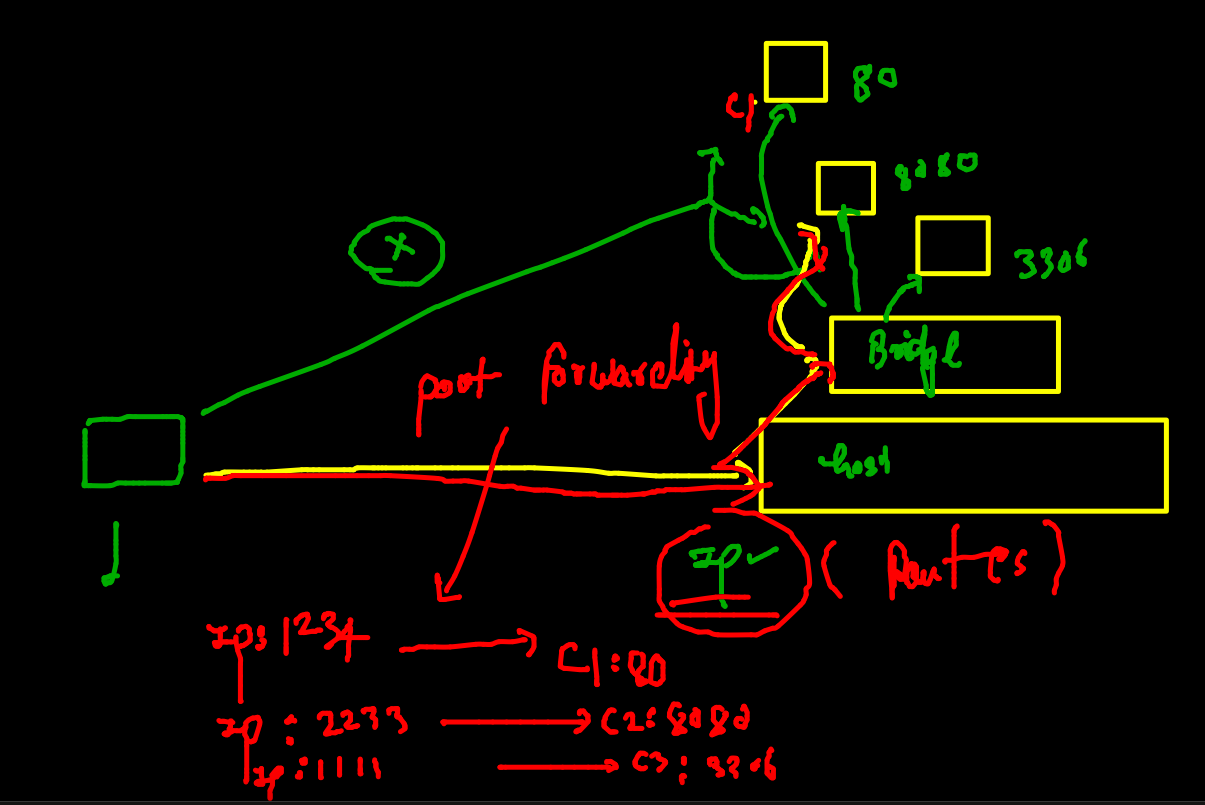 80
C1
8080
3306
Bridge
port forwarding
host
IP
(Routes)
IP:1234 → C1:80
IP:2233 → C2:8080
IP:1111 → C3:3306